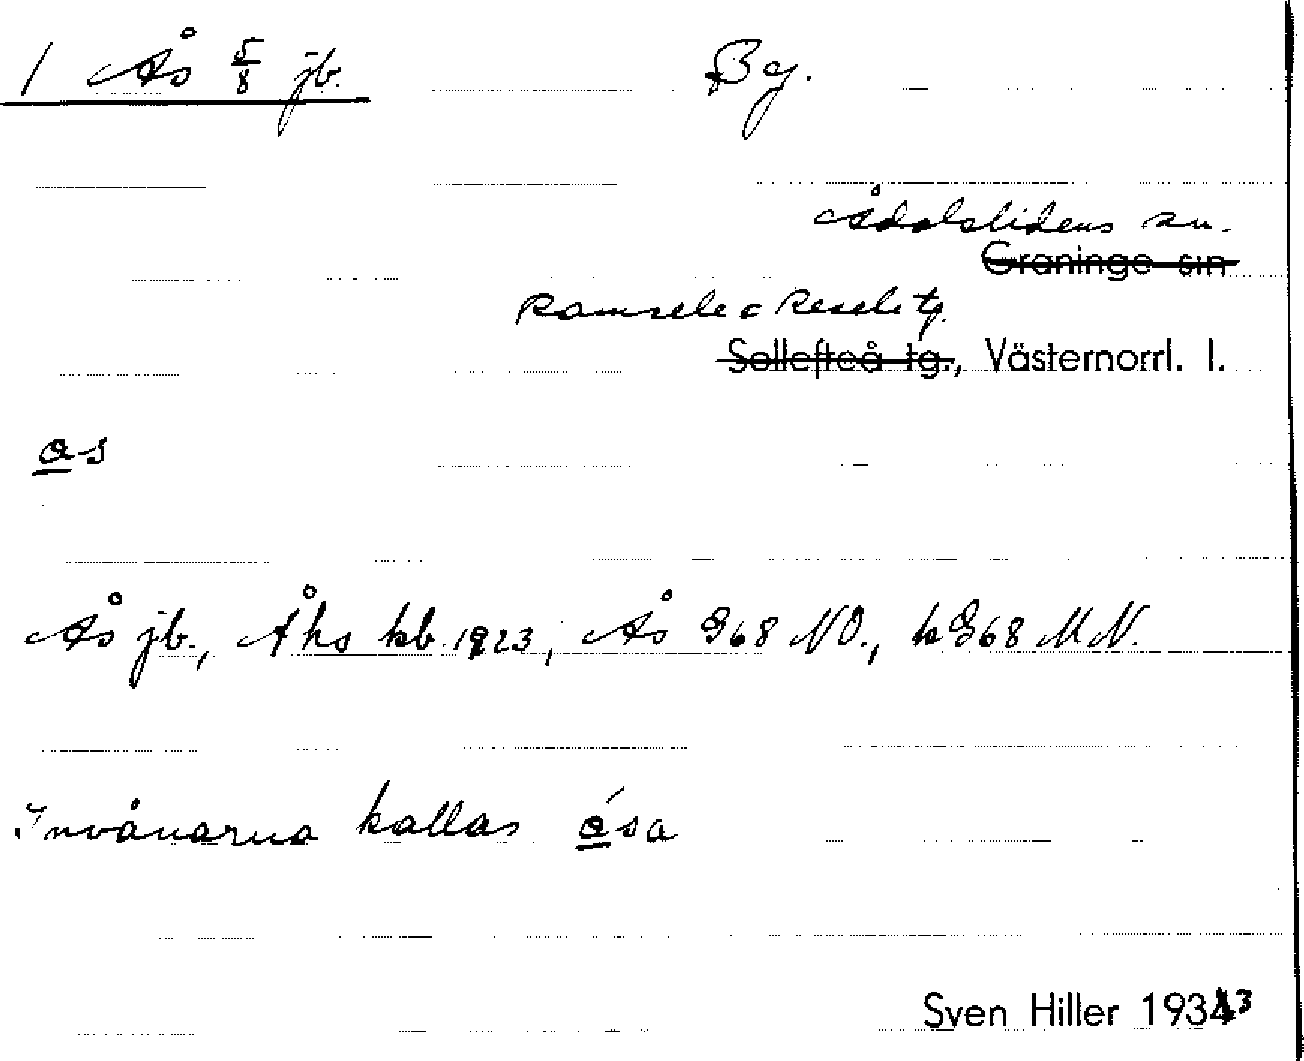 1 Ås 5/8 jb. By.
Ådalslidens sn.
Graninge sn
Ramsele o Resele tg.
Sollefteå tg., Västernorrl. l.
as
Ås jb., Åhs kb. 1923, Ås G68 NO., k G68 MN.
Invånarna kallas ása
Sven Hiller 1933